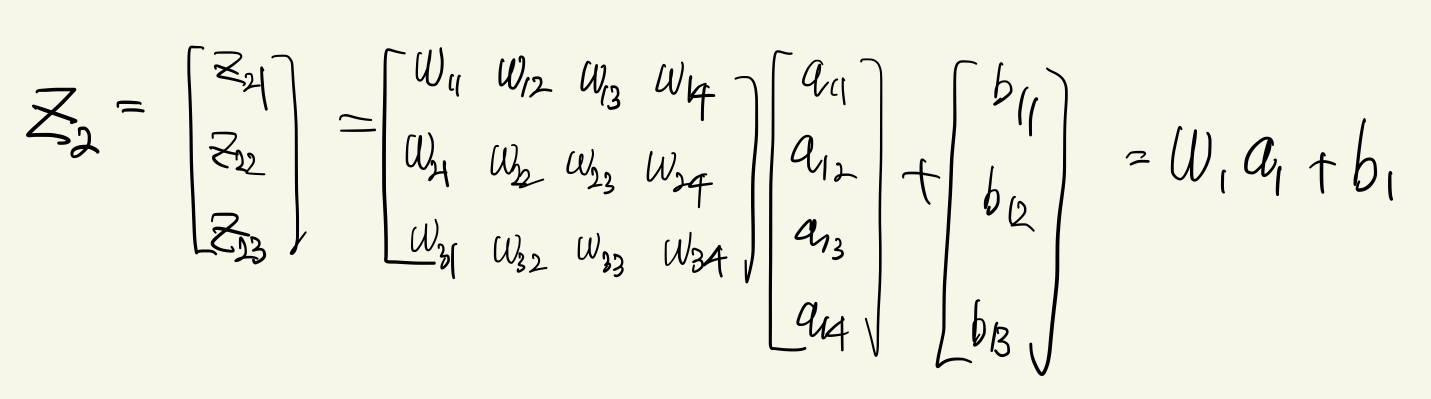 Z₂ = [z₂₁ z₂₂ z₂₃] = [w₁₁ w₁₂ w₁₃ w₁₄; w₂₁ w₂₂ w₂₃ w₂₄; w₃₁ w₃₂ w₃₃ w₃₄] [a₁₁ a₁₂ a₁₃ a₁₄] + [b₁₁ b₁₂ b₁₃] = W₁ a₁ + b₁